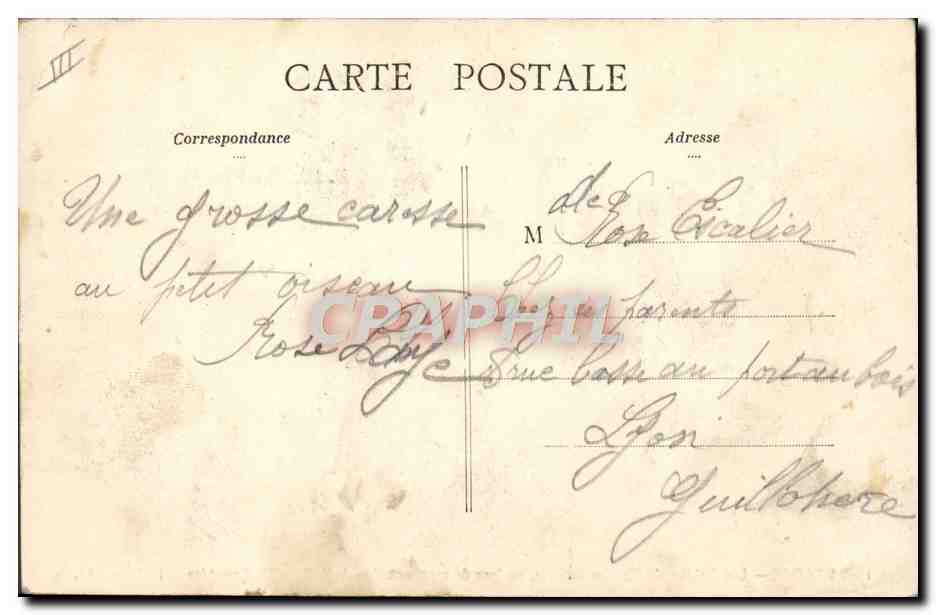 VII
CARTE POSTALE
Correspondance
Adresse
Une grosse caresse
au petit oiseau
Rose
M dle Rose Escalier
Chez ses parents
8 rue basse au port au bois
Lyon
Guillotière
CPAPHIL